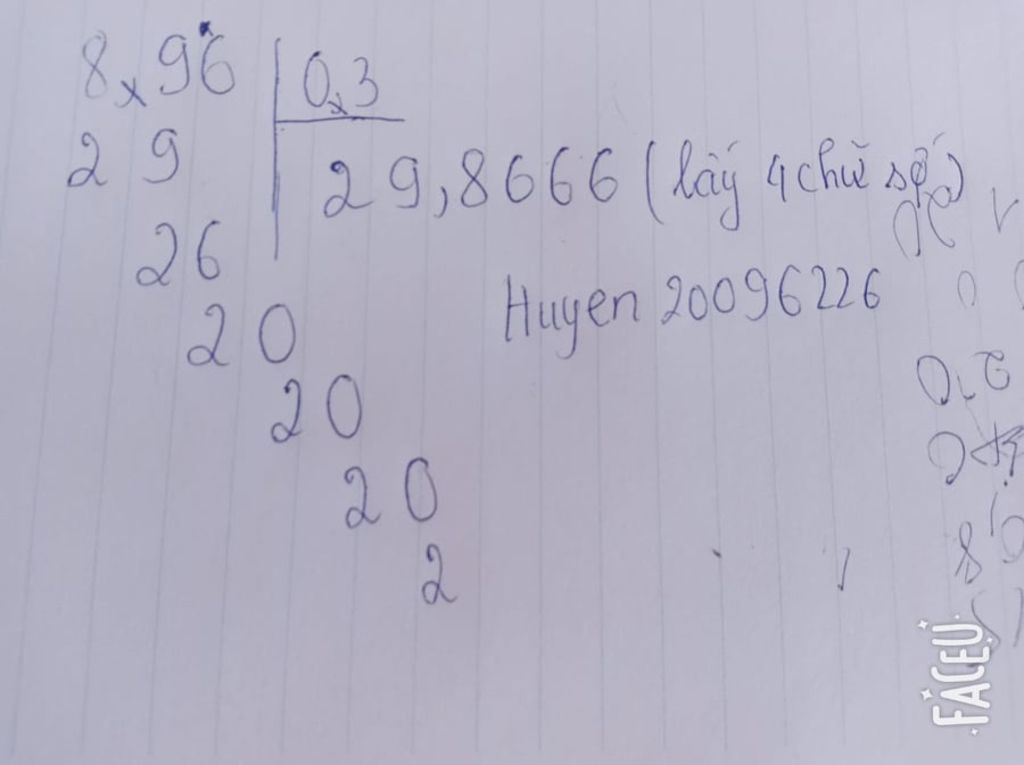 8,96 | 0,3
29 | 29,8666 (lấy 4 chữ số)
26
Huyen 20096226
20
20
20
2
FACEU